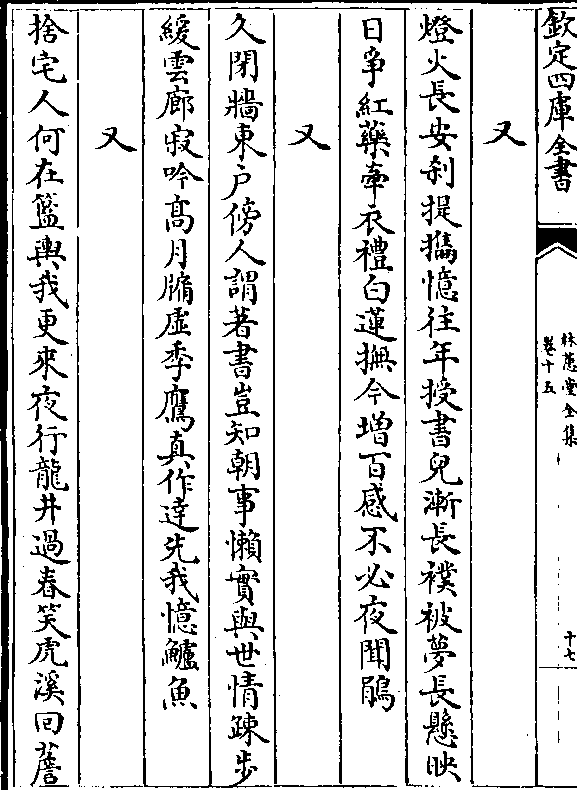 欽定四庫全書
林蕙堂全集
卷十五
十七
又
燈火長安刹提攜憶往年授書兒漸長襆被夢長懸映
日爭紅藥牽衣禮白蓮撫今增百感不必夜聞鵑
又
久閉牆東戶傍人謂著書豈知朝事懶實與世情疎步
緩雲廊寂吟髙月牖虛季鷹真作達先我憶鱸魚
又
捨宅人何在籃輿我更來夜行龍井過春笑虎溪回薝